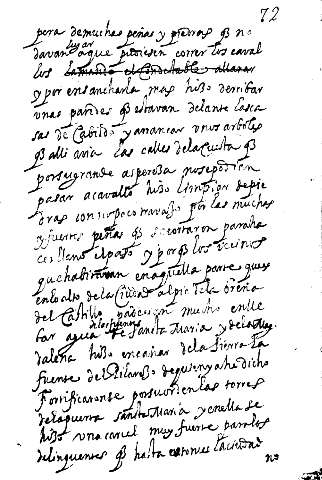 72
pera de muchas peñas y piedras q no
davan lugar a que pudiesen correr los caval
los la mando el condestable allanar
y por ensancharla mas hizo derribar
unas paredes q estavan delante las ca
sas de Cabildo y arrancar unos arboles
q alli avia las calles de la Cuesta q
por ser grande aspereza no se podian
pasar a cavallo hizo limpiar de pie
dras con no poco travajo por las muchas
y fuertes peñas q se cortaron para ha
cer lleno el paso y porq los vecinos
que habitavan en aquella parte ques
en lo alto de la Ciudad al pie de la peña
del Castillo padecian mucho en lle
bar agua de las fuentes de Santa Maria y de la Mag
dalena hizo encañar de la sierra la
fuente del Pilarejo de quien ya he dicho
Fortificaronse por su orden las torres
de la puerta Santa Maria y en ella se
hizo una carcel muy fuerte para los
delinquentes q hasta entonces la ciudad
no